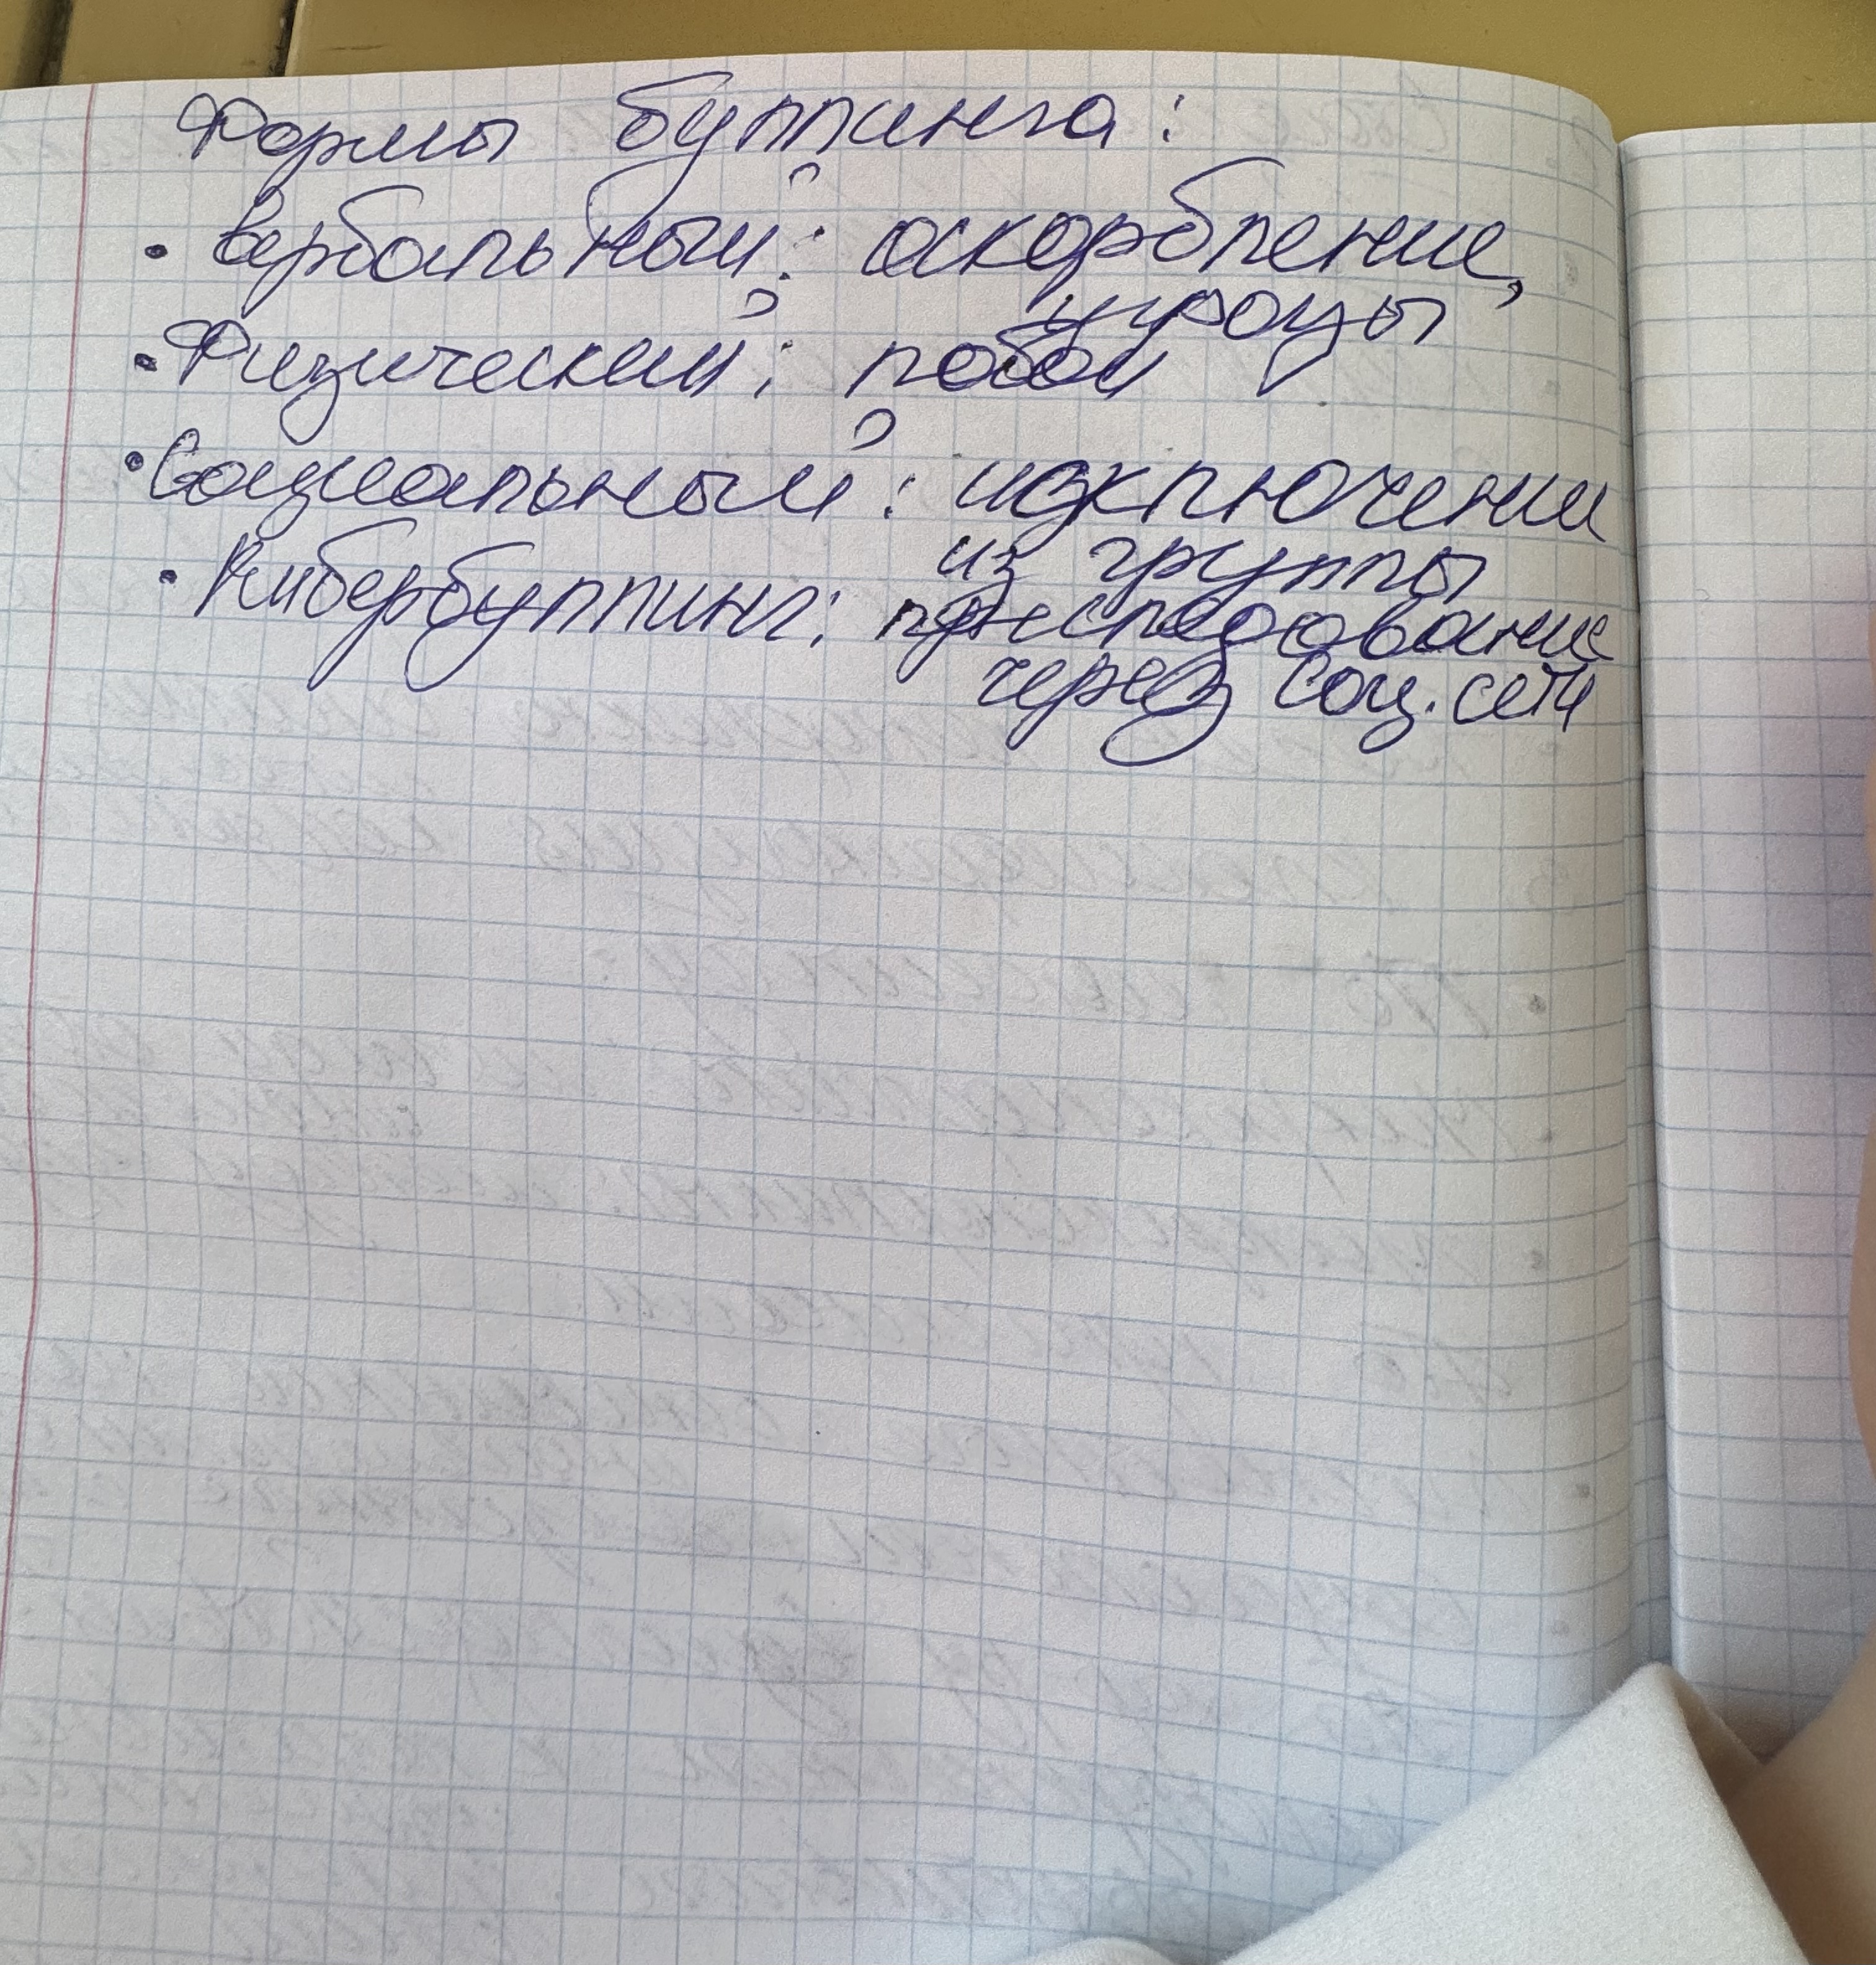 Формы буллинга:
• Вербальный: оскорбление,
угрозы
• Физический: побои
• Социальный: исключении
из группы
• Кибербуллинг: преследование
через соц. сети